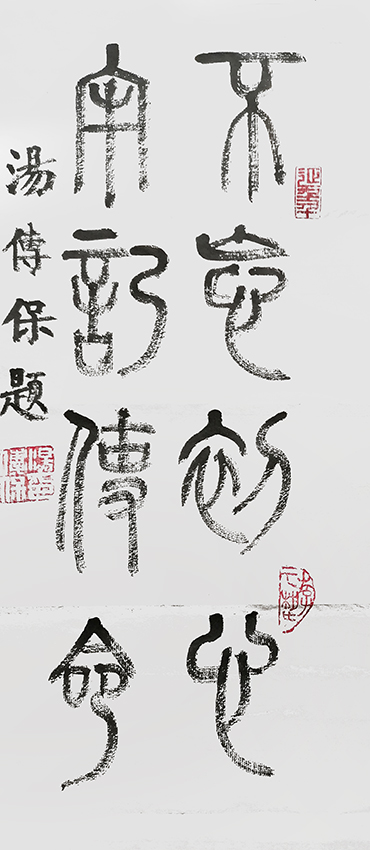 不忘初心
牢記使命
湯傳保題